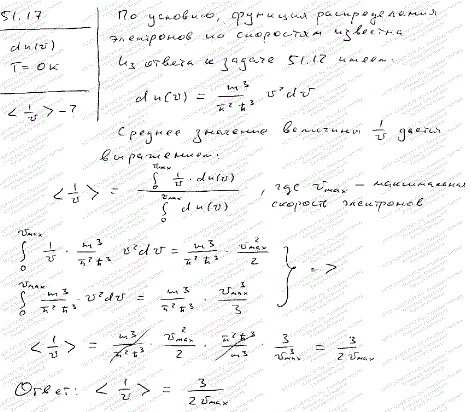 51.17
По условию, функция распределения
электронов по скоростям известна
dn(v)
T = 0K
Из ответа к задаче 51.12 имеем:
dn(v) = m³/π²ħ³ v²dv
<1/v> - ?
Среднее значение величины 1/v дается
выражением:
<1/v> = ∫₀^vmax 1/v · dn(v) / ∫₀^vmax dn(v), где vmax – максимальная
скорость электронов
∫₀^vmax 1/v · m³/π²ħ³ v²dv = m³/π²ħ³ · v²max/2
∫₀^vmax m³/π²ħ³ v²dv = m³/π²ħ³ · v³max/3 } =>
<1/v> = m³/π²ħ³ · v²max/2 · π²ħ³/m³ · 3/v³max = 3/2vmax
Ответ: <1/v> = 3/2vmax